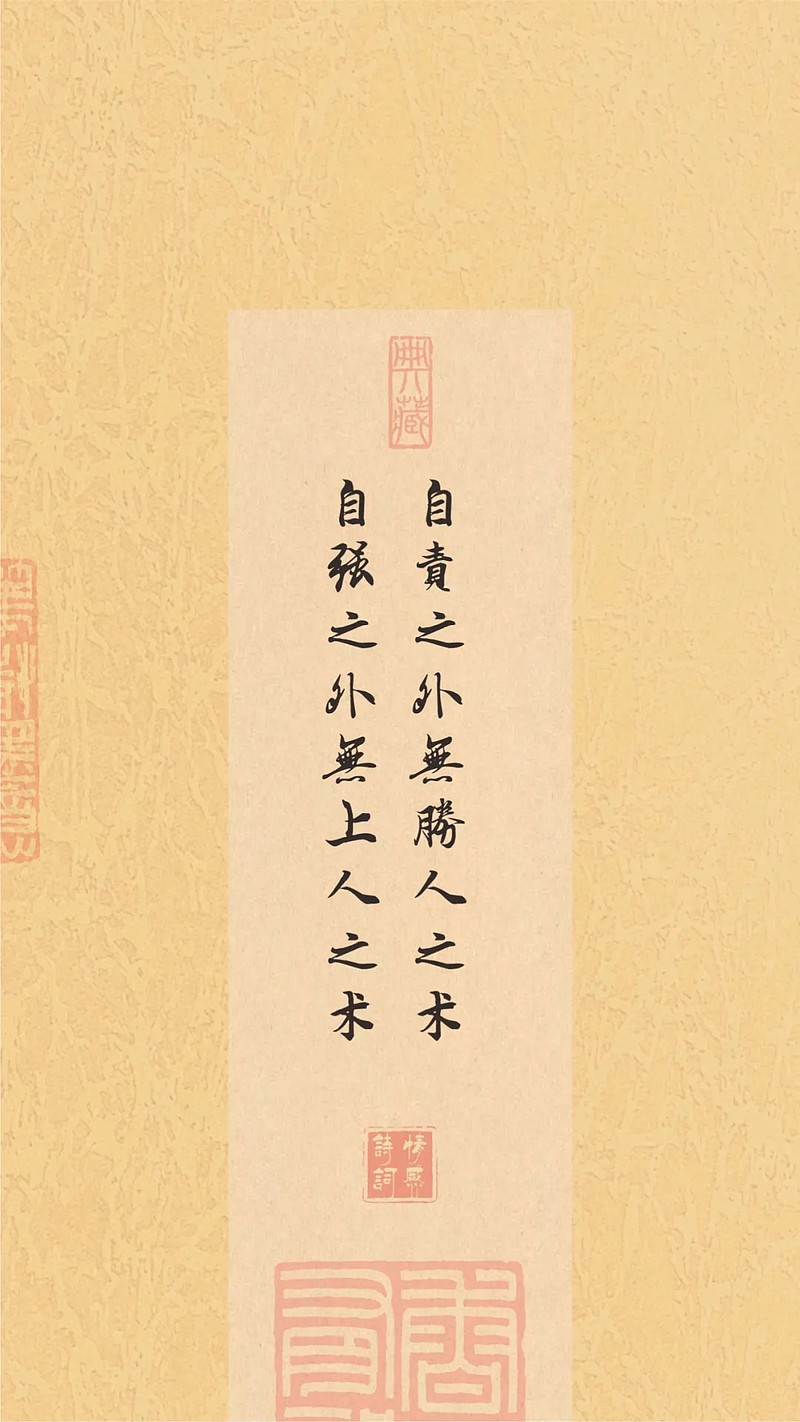 典藏
自責之外無勝人之术
自强之外無上人之术
情感
詩詞